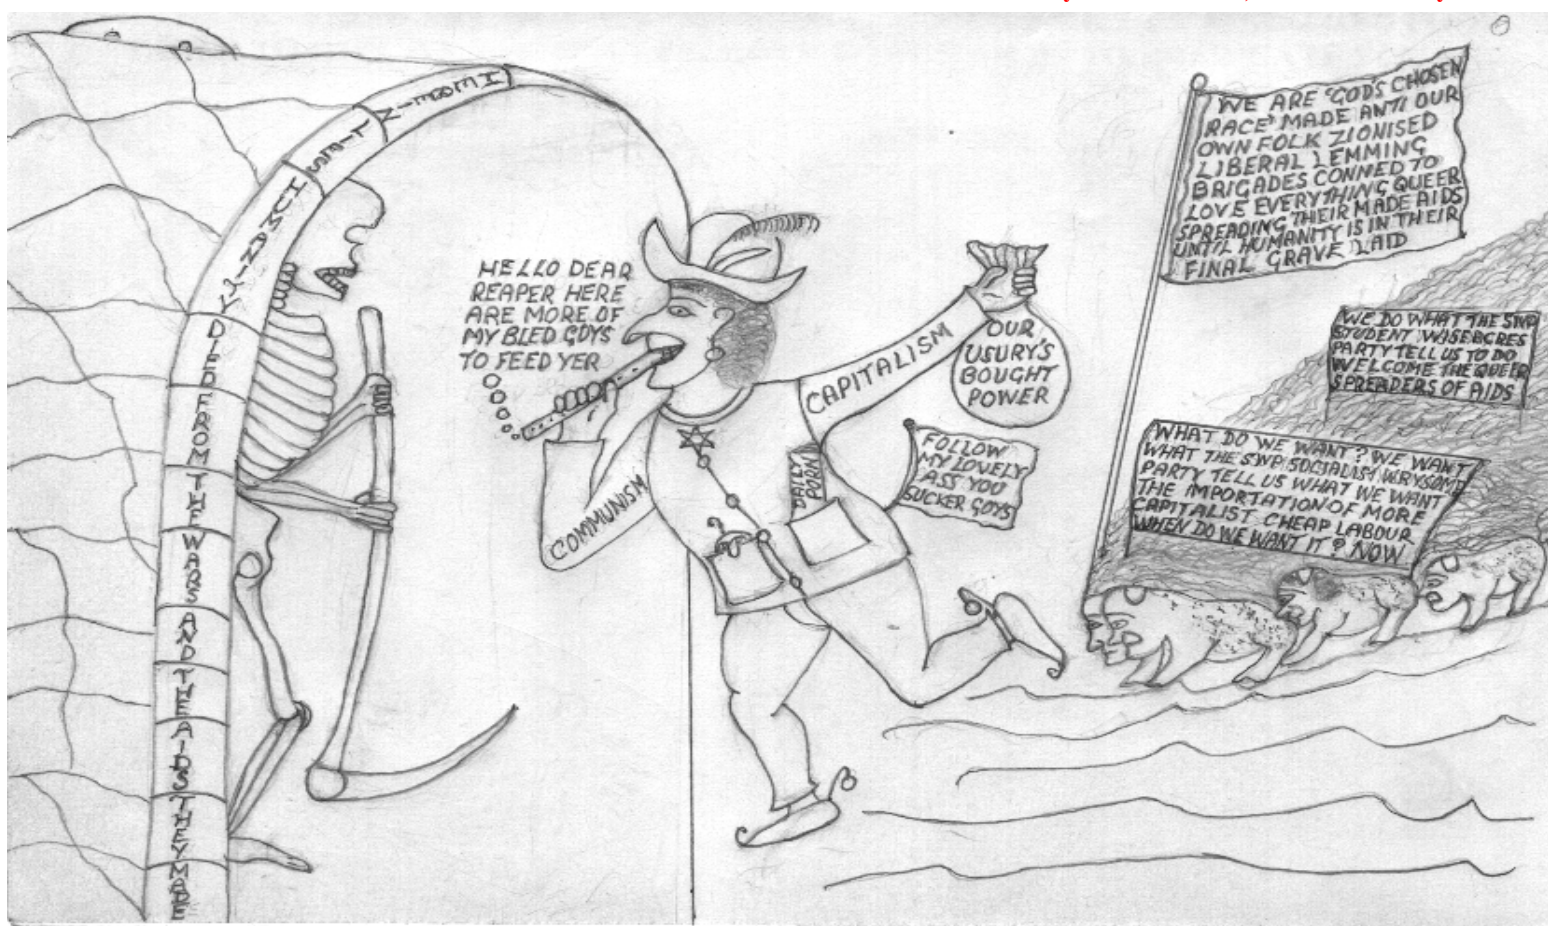 HEREIN
LIES
HUMANITY
DIED
FROM
THE
WARS
AND
THE
AIDS
THEY
MADE
HELLO DEAR
REAPER HERE
ARE MORE OF
MY BLED GUYS
TO FEED YER
COMMUNISM
CAPITALISM
OUR
USURY'S
BOUGHT
POWER
DAILY
PORN
FOLLOW
MY LOVELY
ASS YOU
SUCKER GOYS
WE ARE 'GOD'S CHOSEN
RACE' MADE ANTI OUR
OWN FOLK ZIONISED
LIBERAL LEMMING
BRIGADES CONNED TO
LOVE EVERYTHING QUEER
SPREADING THEIR MADE AIDS
UNTIL HUMANITY IS IN THEIR
FINAL GRAVE LAID
WE DO WHAT THE SWP
STUDENT WISEACRES
PARTY TELL US TO DO
WELCOME THE QUEER
SPREADERS OF AIDS
WHAT DO WE WANT? WE WANT
WHAT THE SWP SOCIALIST
PARTY TELL US WHAT WE WANT
THE IMPORTATION OF MORE
CAPITALIST CHEAP LABOUR
WHEN DO WE WANT IT? NOW